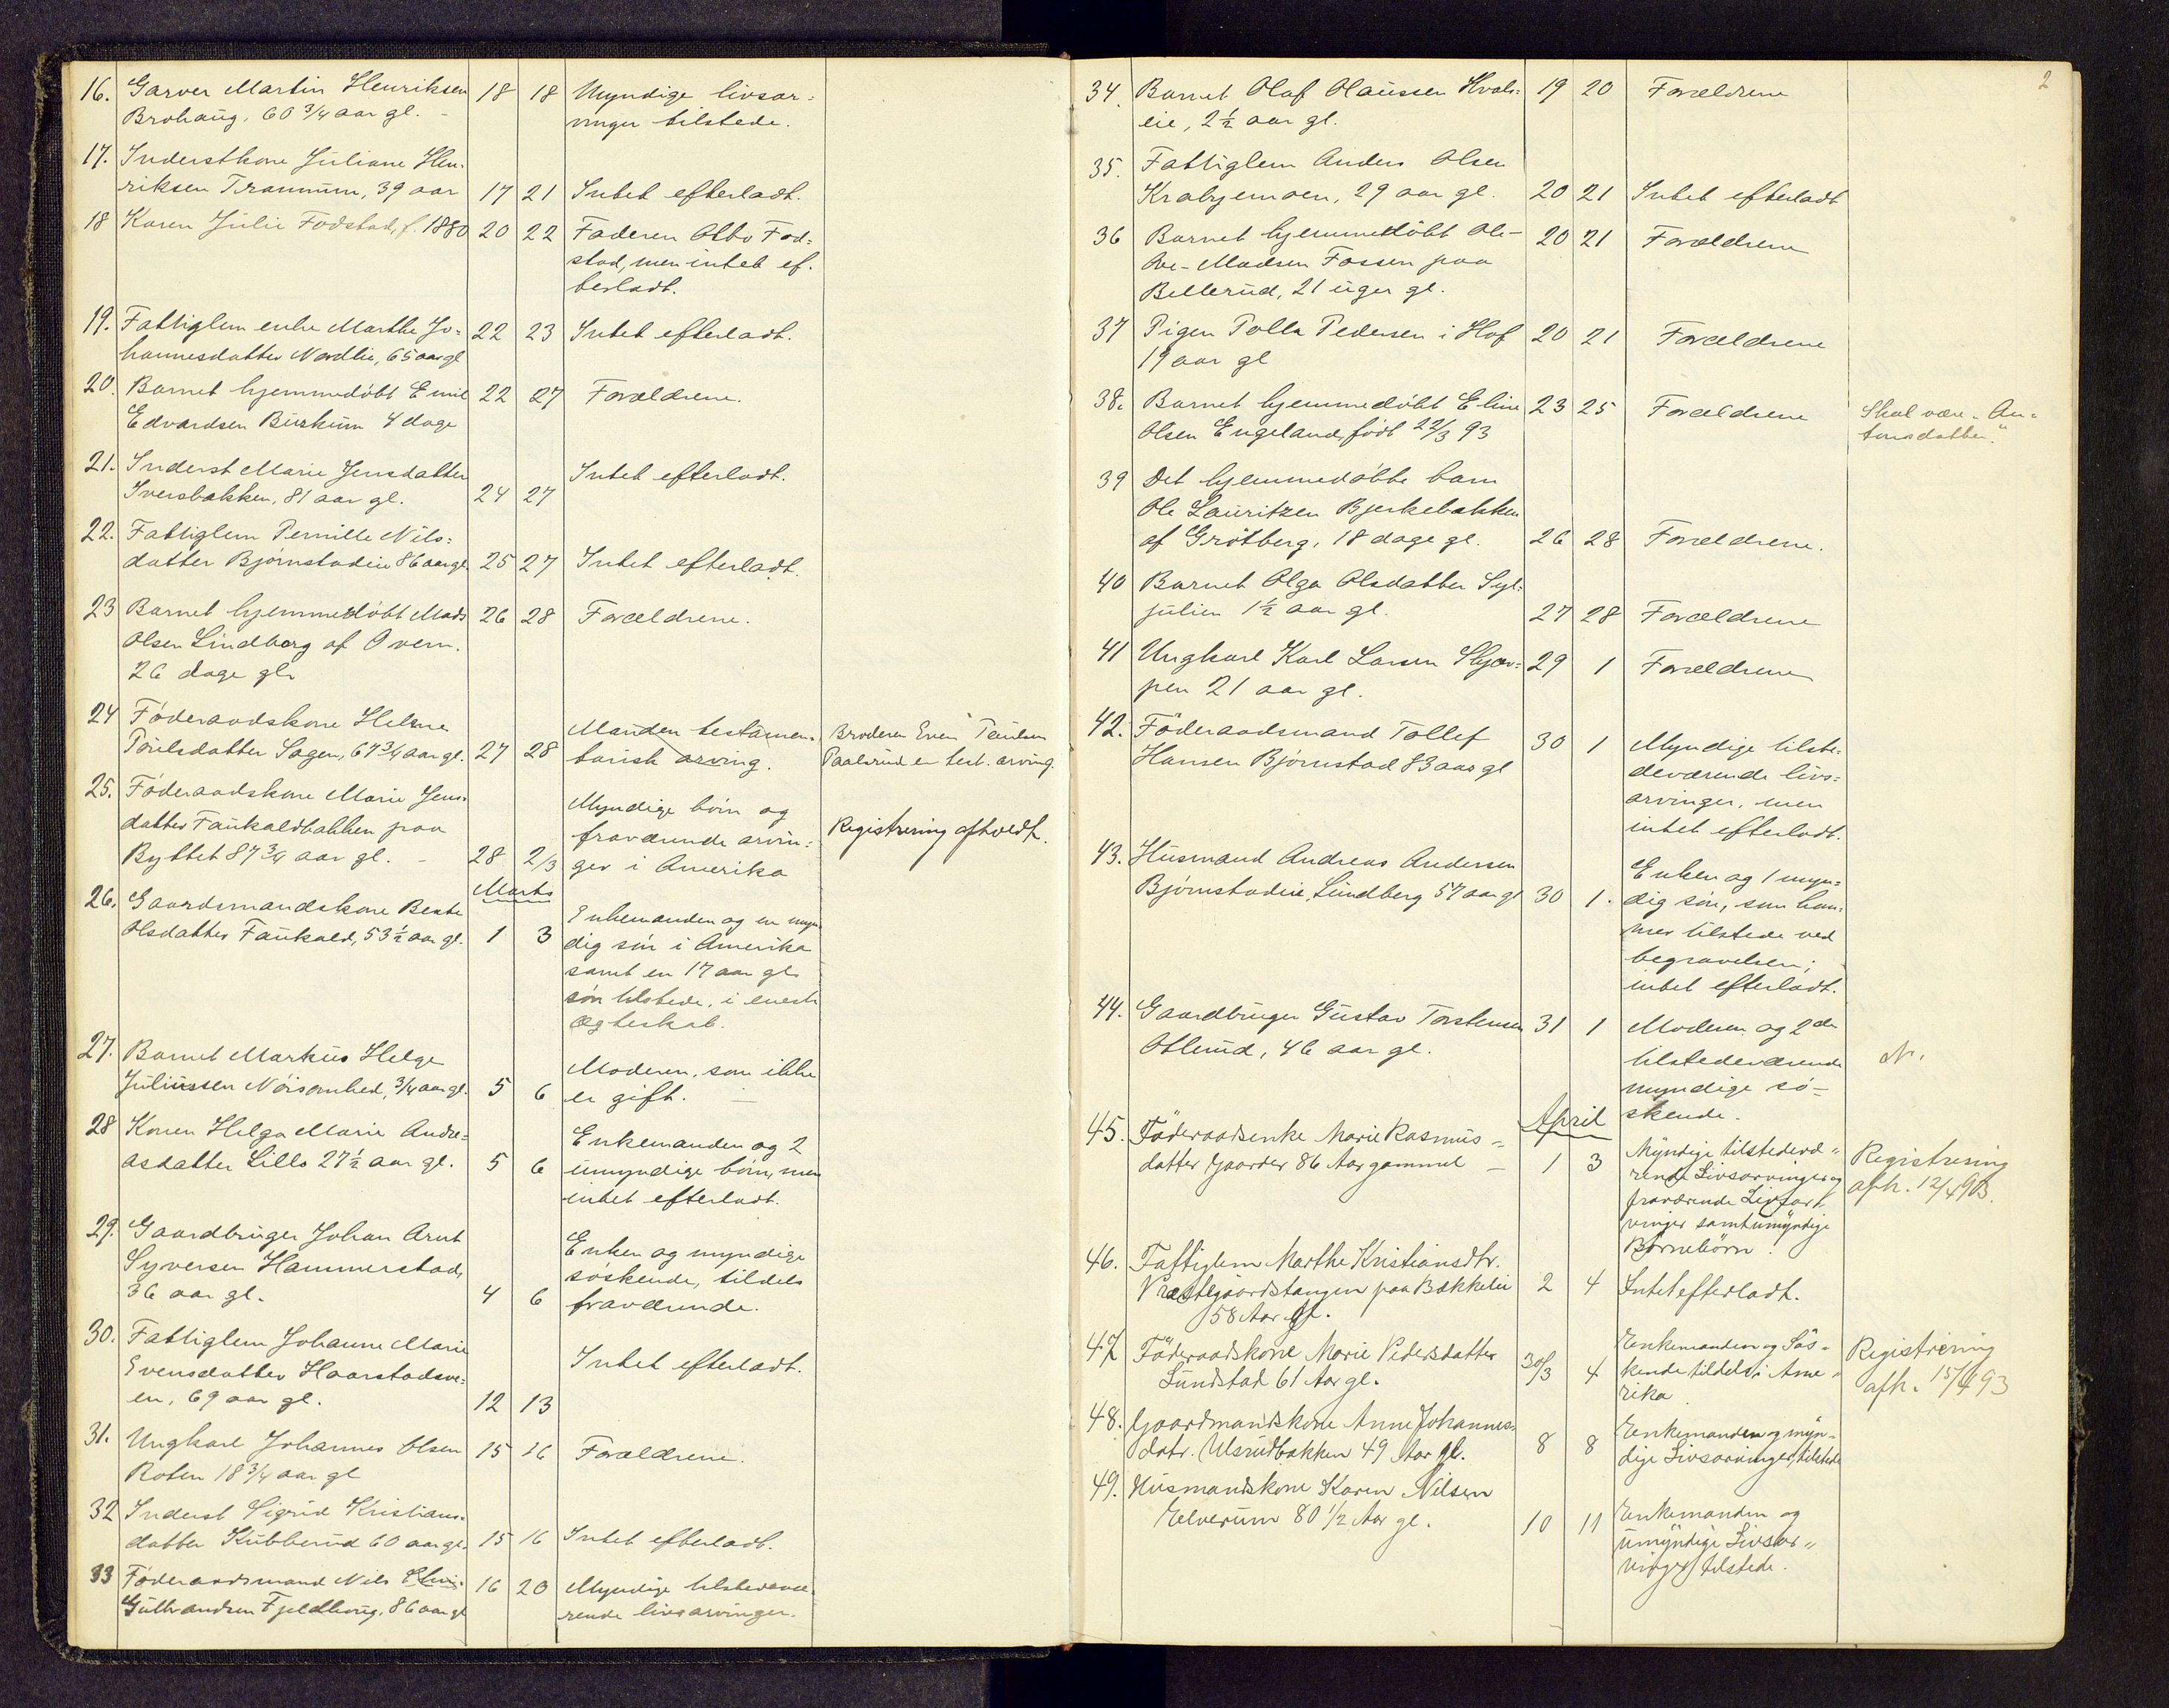 16. Garver Martin Henriksen 18 18 Myndige livsar-
Brohaug, 60 3/4 aar gl. vinger tilstede.
17. Inderstkone Juliane Hen-
riksen Tranum, 39 aar 17 21 Intet efterladt.
18 Karen Julie Fodstad, f. 1880 20 22 Faderen Otto Fod-
stad, men intet ef-
terladt.
19. Fattiglem enke Marthe Jo- 22 23 Intet efterladt.
hannesdatter Nordlie, 65 aar gl
20. Barnet hjemmedøbt Emil 22 27 Forældrene.
Edvardsen Burkum 4 dage
21. Inderst Marie Jensdatter Intet efterladt.
Iversbakken, 81 aar gl. 24 27
22. Fattiglem Pernille Nils-
datter Bjørnstadeie 86 aar gl. 25 27 Intet efterladt.
23 Barnet hjemmedøbt Mads 26 28 Forældrene.
Olsen Lindberg af Overn.
26 dage gl.
24 Føderaadskone Helene Manden testamen- Broderen Even Paulsen
Poulsdatter Sagen, 67 3/4 aar gl. 27 28 tarisk arving. Paalsrud er test. arving.
25. Føderaadskone Marie Jens- Myndige børn og
datter Faukaldbakken paa fraværende arvin- Registrering afholdt.
Byttet 87 3/4 aar gl. - 28 2/3 ger i Amerika
Marts
26. Gaardmandskone Beate Enkemanden og en myn-
Olsdatter Faukald, 53 1/2 aar gl. 1 3 dig søn i Amerika
samt en 17 aar gl.
søn tilstede, i eneste
Ægteskab.
27. Barnet Markus Helge Moderen, som ikke
Juliussen Nøisomhed, 3/4 aar gl. 5 6 er gift.
28 Konen Helga Marie Andre- Enkemanden og 2
asdatter Lille 27 1/2 aar gl. 5 6 umyndige børn, men
intet efterladt.
29. Gaardbruger Johan Arnt Enken og myndige
Syversen Hammerstad, søskende, tildels
36 aar gl. 4 6 fraværende.
30. Fattiglem Johanne Marie
Evensdatter Haarstadsve- Intet efterladt.
en, 69 aar gl. 12 13
31. Ungkarl Johannes Olsen 15 16 Forældrene.
Roten 18 3/4 aar gl
32 Inderst Sigrid Kristians-
datter Kubberud 60 aar gl. 15 16 Intet efterladt.
33 Føderaadsmand Nils 16 20 Myndige tilstedevæ-
Gulbrandsen Fjeldhoug, 86 aar gl rende livsarvinger.
2
34. Barnet Olaf Olaussen Hvals- 19 20 Forældrene
eie, 2 1/2 aar gl.
35. Fattiglem Anders Olsen
Krabyemoen, 29 aar gl. 20 21 Intet efterladt
36 Barnet hjemmedøbt Ole 20 21 Forældrene
Madsen Fossen paa
Bellerud, 21 uger gl.
37 Pigen Polla Pedersen i Hof 20 21 Forældrene
19 aar gl
38. Barnet hjemmedøbt Eline 23 25 Forældrene Skal være "An-
Olsen Engeland, født 22/3 93 tonsdatter."
39 Det hjemmedøbte barn
Ole Lauritzen Bjerkebakken
af Grøtberg, 18 dage gl. 26 28 Forældrene.
40 Barnet Olga Olsdatter Syl-
julien 1 1/2 aar gl. 27 28 Forældrene
41 Ungkarl Karl Larsen Skjær- 29 1 Forældrene
pen 21 aar gl.
42. Føderaadsmand Tollef 30 1 Myndige tilste-
Hansen Bjørnstad 83 aar gl deværende livs-
arvinger, men
intet efterladt.
43. Husmand Andreas Andersen Enken og 1 myn-
Bjørnstadeie, Lundberg 57 aar gl 30 1. dig søn, som kom-
mer tilstede ved
begravelsen;
intet efterladt.
44. Gaardbruger Gustav Torstensen 31 1 Moderen og 2de
Ottlerud, 46 aar gl. tilstedeværende N.
myndige sø-
skende.
April
45. Føderaadsenke Marie Rasmus- Myndige tilstedevæ- Registrering
datter Gaarder 86 Aar gammel - 1 3 rende Livsarvinger og afh. 12/4 93.
fraværende Livsar-
vinger samt umyndige
Børnebørn.
46. Fattiglem Marthe Kristiansdtr.
Præstegaardstangen paa Bakkelie 2 4 Intet efterladt.
58 Aar gl.
47 Føderaadskone Marie Pedersdatter 30/3 4 Enkemanden og Søs- Registrering
Sundstad 61 Aar gl. kende tildels i Ame- afh. 15/4 93
rika
48. Gaardmandskone Anne Johannes- 8 8 Enkemanden og myn-
datr. Ulsrudbakken 49 Aar gl. dige Livsarvinger, tilstede
49. Husmandskone Karen Nilsen
Elverum 80 1/2 Aar gl. 10 11 Enkemanden og
umyndige Livsar-
vinger tilstede.